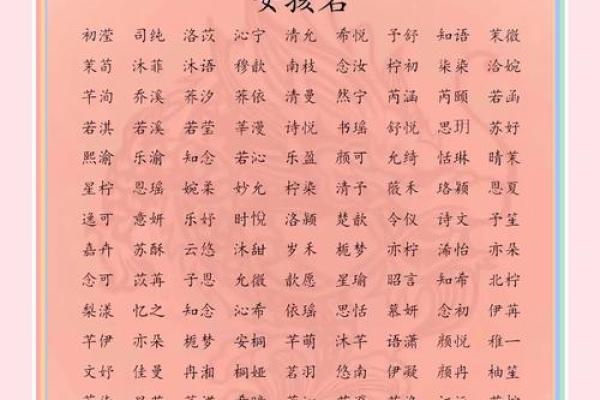 女孩名
初滢 司纯 洛苡 沁宁 清允 希悦 予舒 知语 茉微
茉荀 沐菲 沐语 穆歆 南枝 念汝 柠初 柒柒 洽婉
芊洵 乔溪 荞汐 荞依 清曼 然宁 芮涵 芮颐 若函
若淇 若溪 若莹 莘漫 诗悦 书瑶 舒悦 思玥 苏好
熙渝 乐渝 知念 若沁 乐盈 颜可 允绮 恬琳 晴茉
星柠 恩瑶 婉柔 妙允 柠染 清予 薇禾 珞颖 恩夏
逸可 意妍 乐妤 时悦 洛颖 楚歆 令仪 诗文 予笙
嘉卉 苏酥 云悠 沐甜 岁禾 栀梦 亦柠 浠怡 亦朵
念可 苡苒 子恩 允微 歆愿 星瑜 昭言 知希 北柠
梨漾 忆之 知念 沁希 依瑶 思恬 慕妍 念初 伊苒
芊伊 亦朵 栀梦 安桐 芊萌 沐芊 语潇 颜悦 稚一
文妤 佳曼 冉湘 桐娅 茗羽 悠南 伊凝 颜冉 柚笙